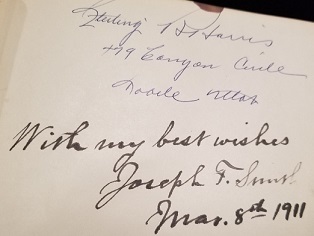 Sterling R Harris
479 Canyon Circle
Tooele Utah
With my best wishes
Joseph F. Smith
Mar. 8th 1911